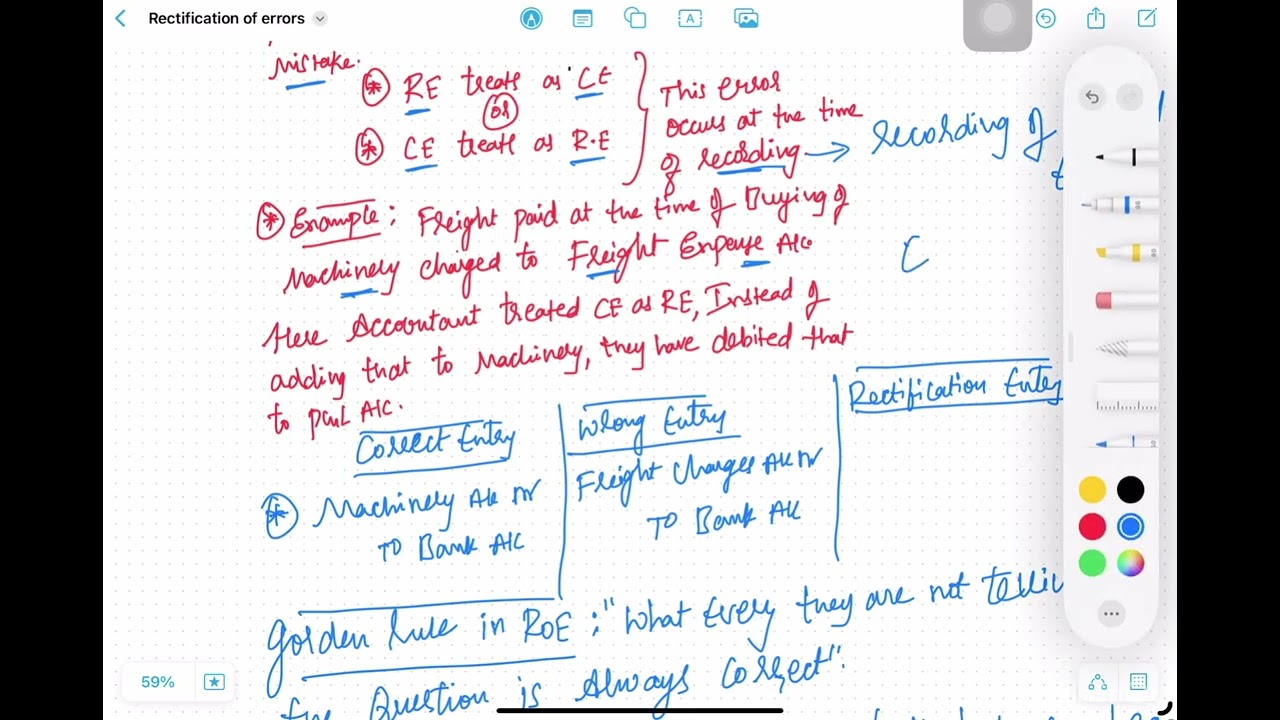 Rectification of errors
Mistake.
RE treats as CE
or
CE treats as R.E
This error
occurs at the time
of recording → recording of
Example: Freight paid at the time of Buying of
Machinery charged to Freight Expense A/c
Here Accountant treated CE as RE, Instead of
adding that to Machinery, they have debited that
to P&L A/C.
Correct Entry
Machinery A/c Dr
TO Bank A/C
Wrong Entry
Freight Charges A/c Dr
TO Bank A/c
Rectification Entry
Golden Rule in ROE : "What Every they are not
the Question is Always Correct".
59%